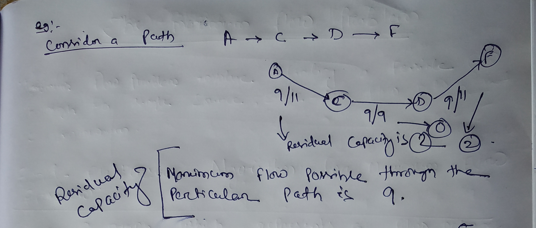 eg:-
Consider a Path A → C → D → F
A
9/11
C
9/9
D
9/11
F
0
Residual Capacity is 2 2
Residual Capacity
Maximum flow possible through the
Particular Path is 9.